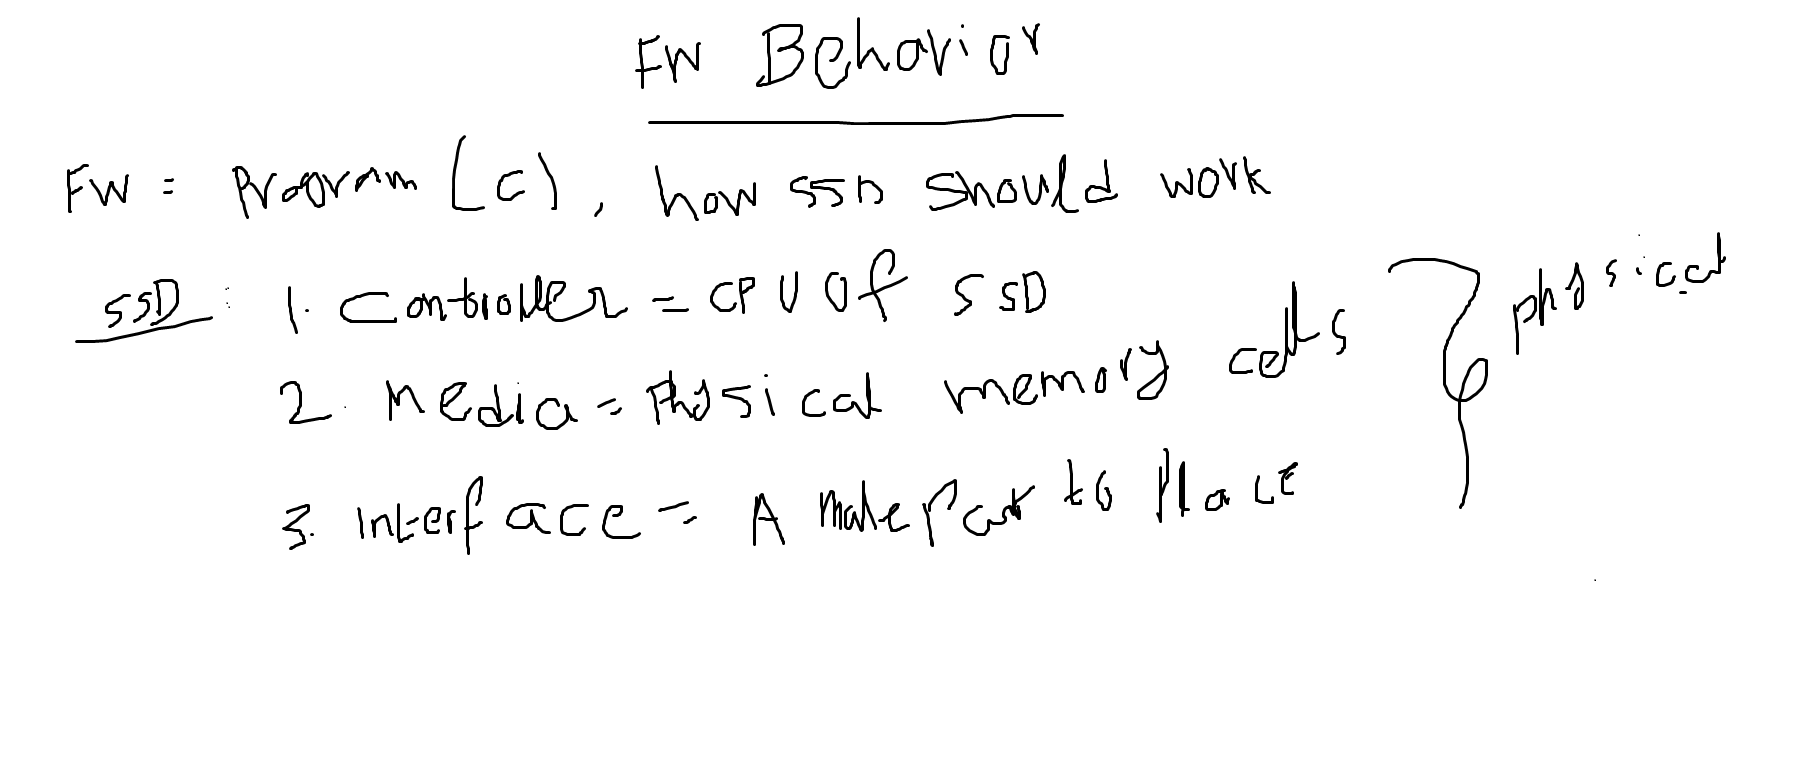 FW Behavior
FW = Program (C), how SSD should work
SSD : 1. Controller = CPU of SSD
2. Media = Physical memory cells
3. Interface = A male Part to Place
physical